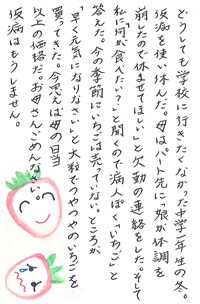 どうしても学校に行きたくなかった中学一年生の冬。
仮病を使い休んだ。母はパート先に「娘が体調を
崩したので休ませてほしい」と欠勤の連絡をした。そして
私に「何が食べたい？」と聞くので病人ぽく「いちご」と
答えた。今の季節にいちごは売っていない。ところが、
「早く元気になりなさい」と大粒でつやつやのいちごを
買ってきた。今思えば母の日当
以上の価格だ。お母さんごめんなさい。
仮病はもうしません。